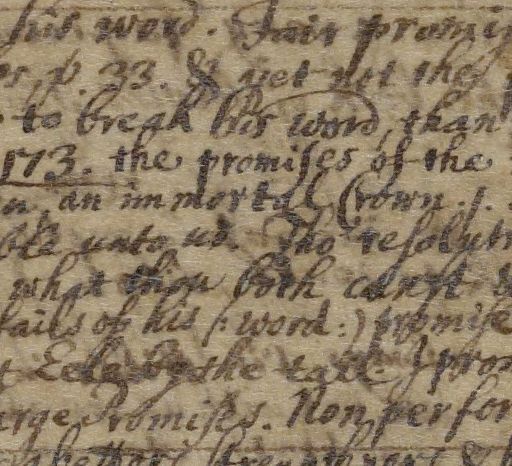 his word. Fair promis
p. 33. & yet not the
to break his word, than
573. the promises of the
an immortal Crown. p.
unto us. Tho' resoluti
what thou both canst
fails of his (: word :) promise
the tale. I prom
arge Promises. Non perfor